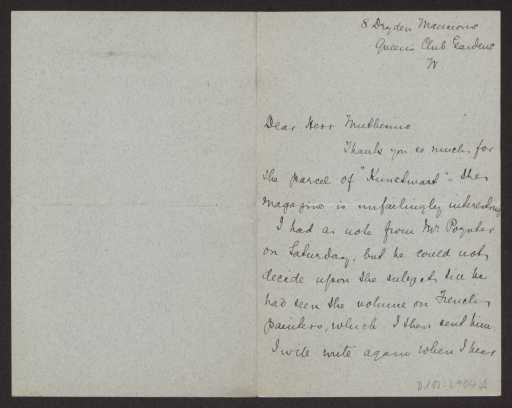 8 Dryden Mansions
Queen's Club Gardens
W
Dear Herr Muthesius
Thank you so much for
the parcel of "Kunstwart" - the
magazine is unfailingly interesting
I had a note from Mr Poynter
on Saturday, but he could not
decide upon the subject till he
had seen the volume on French
painters, which I then sent him
I will write again when I hear